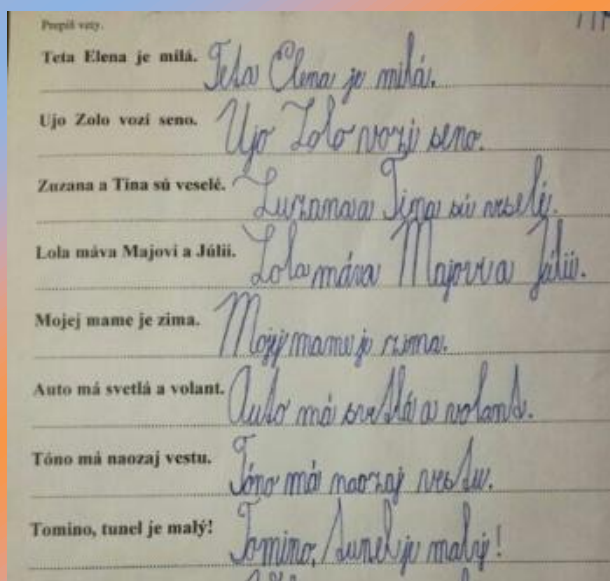 Prepíš vety.
Teta Elena je milá. Teta Elena je milá.
Ujo Zolo vozí seno. Ujo Zolo vozí seno.
Zuzana a Tina sú veselé. Zuzana a Tina sú veselé.
Lola máva Majovi a Júlii. Lola máva Majovi a Júlii.
Mojej mame je zima. Mojej mame je zima.
Auto má svetlá a volant. Auto má svetlá a volant.
Tóno má naozaj vestu. Tóno má naozaj vestu.
Tomino, tunel je malý! Tomino, tunel je malý!